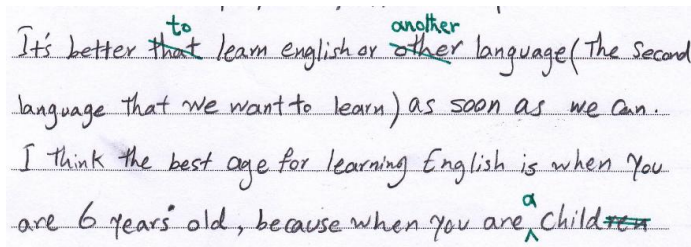 to another
It's better that learn english or other language (The second
language that we want to learn) as soon as we can.
I think the best age for learning English is when you
a
are 6 years old, because when you are children